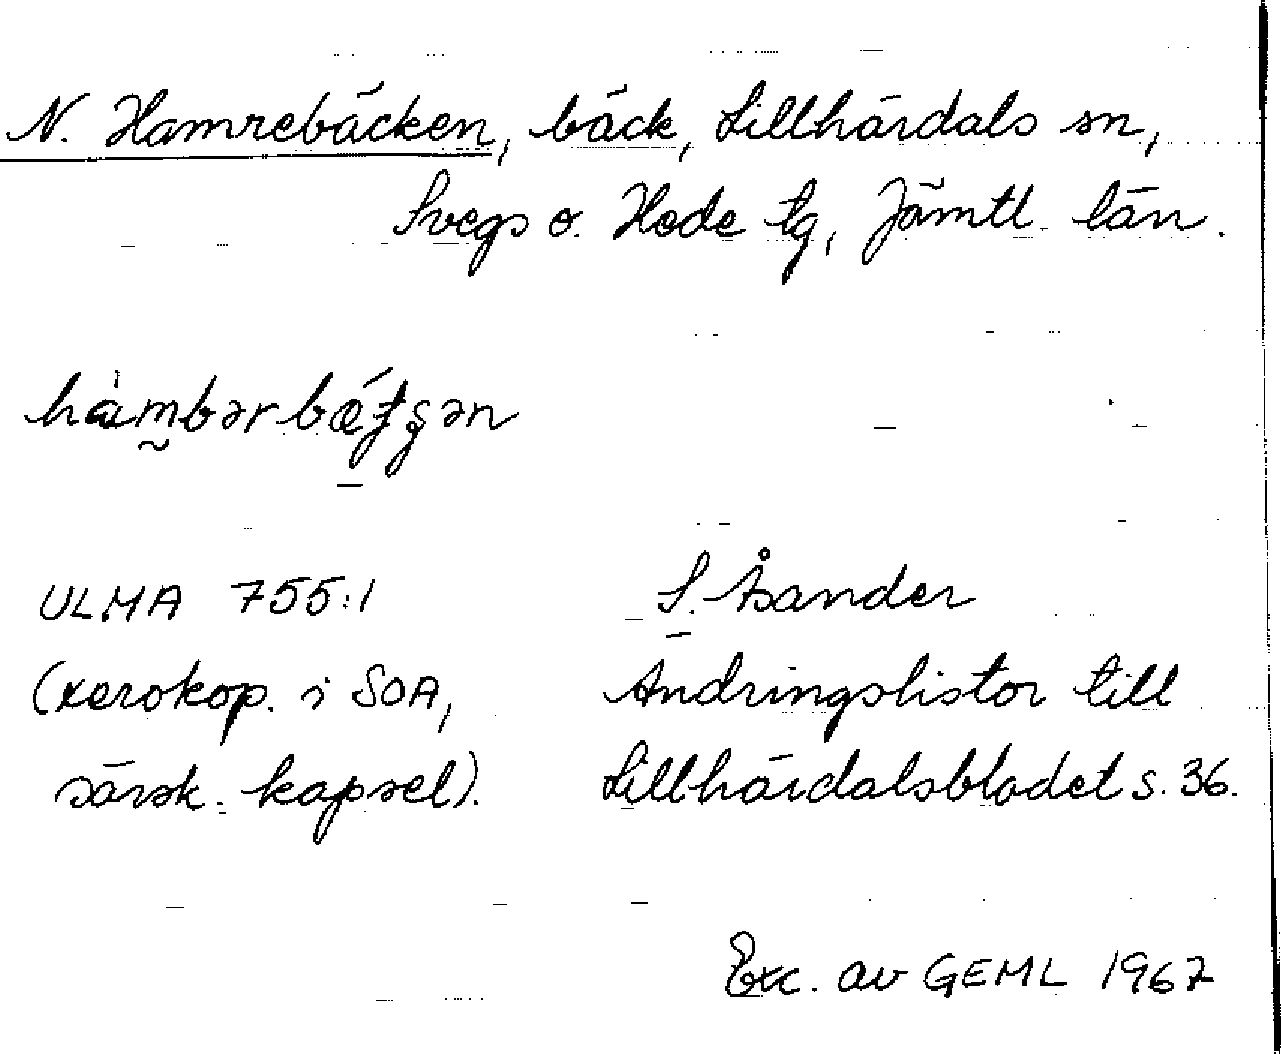 N. Hamrebäcken, bäck, Lillhärdals sn,
Svegs o. Hede tg, Jämtl. län.
hàm̰bərbǽʈʂən
ULMA 755:1
S. Åsander
(xerokop. i SOA,
Ändringslistor till
särsk. kapsel).
Lillhärdalsbladet s. 36.
Exc. av GEML 1967